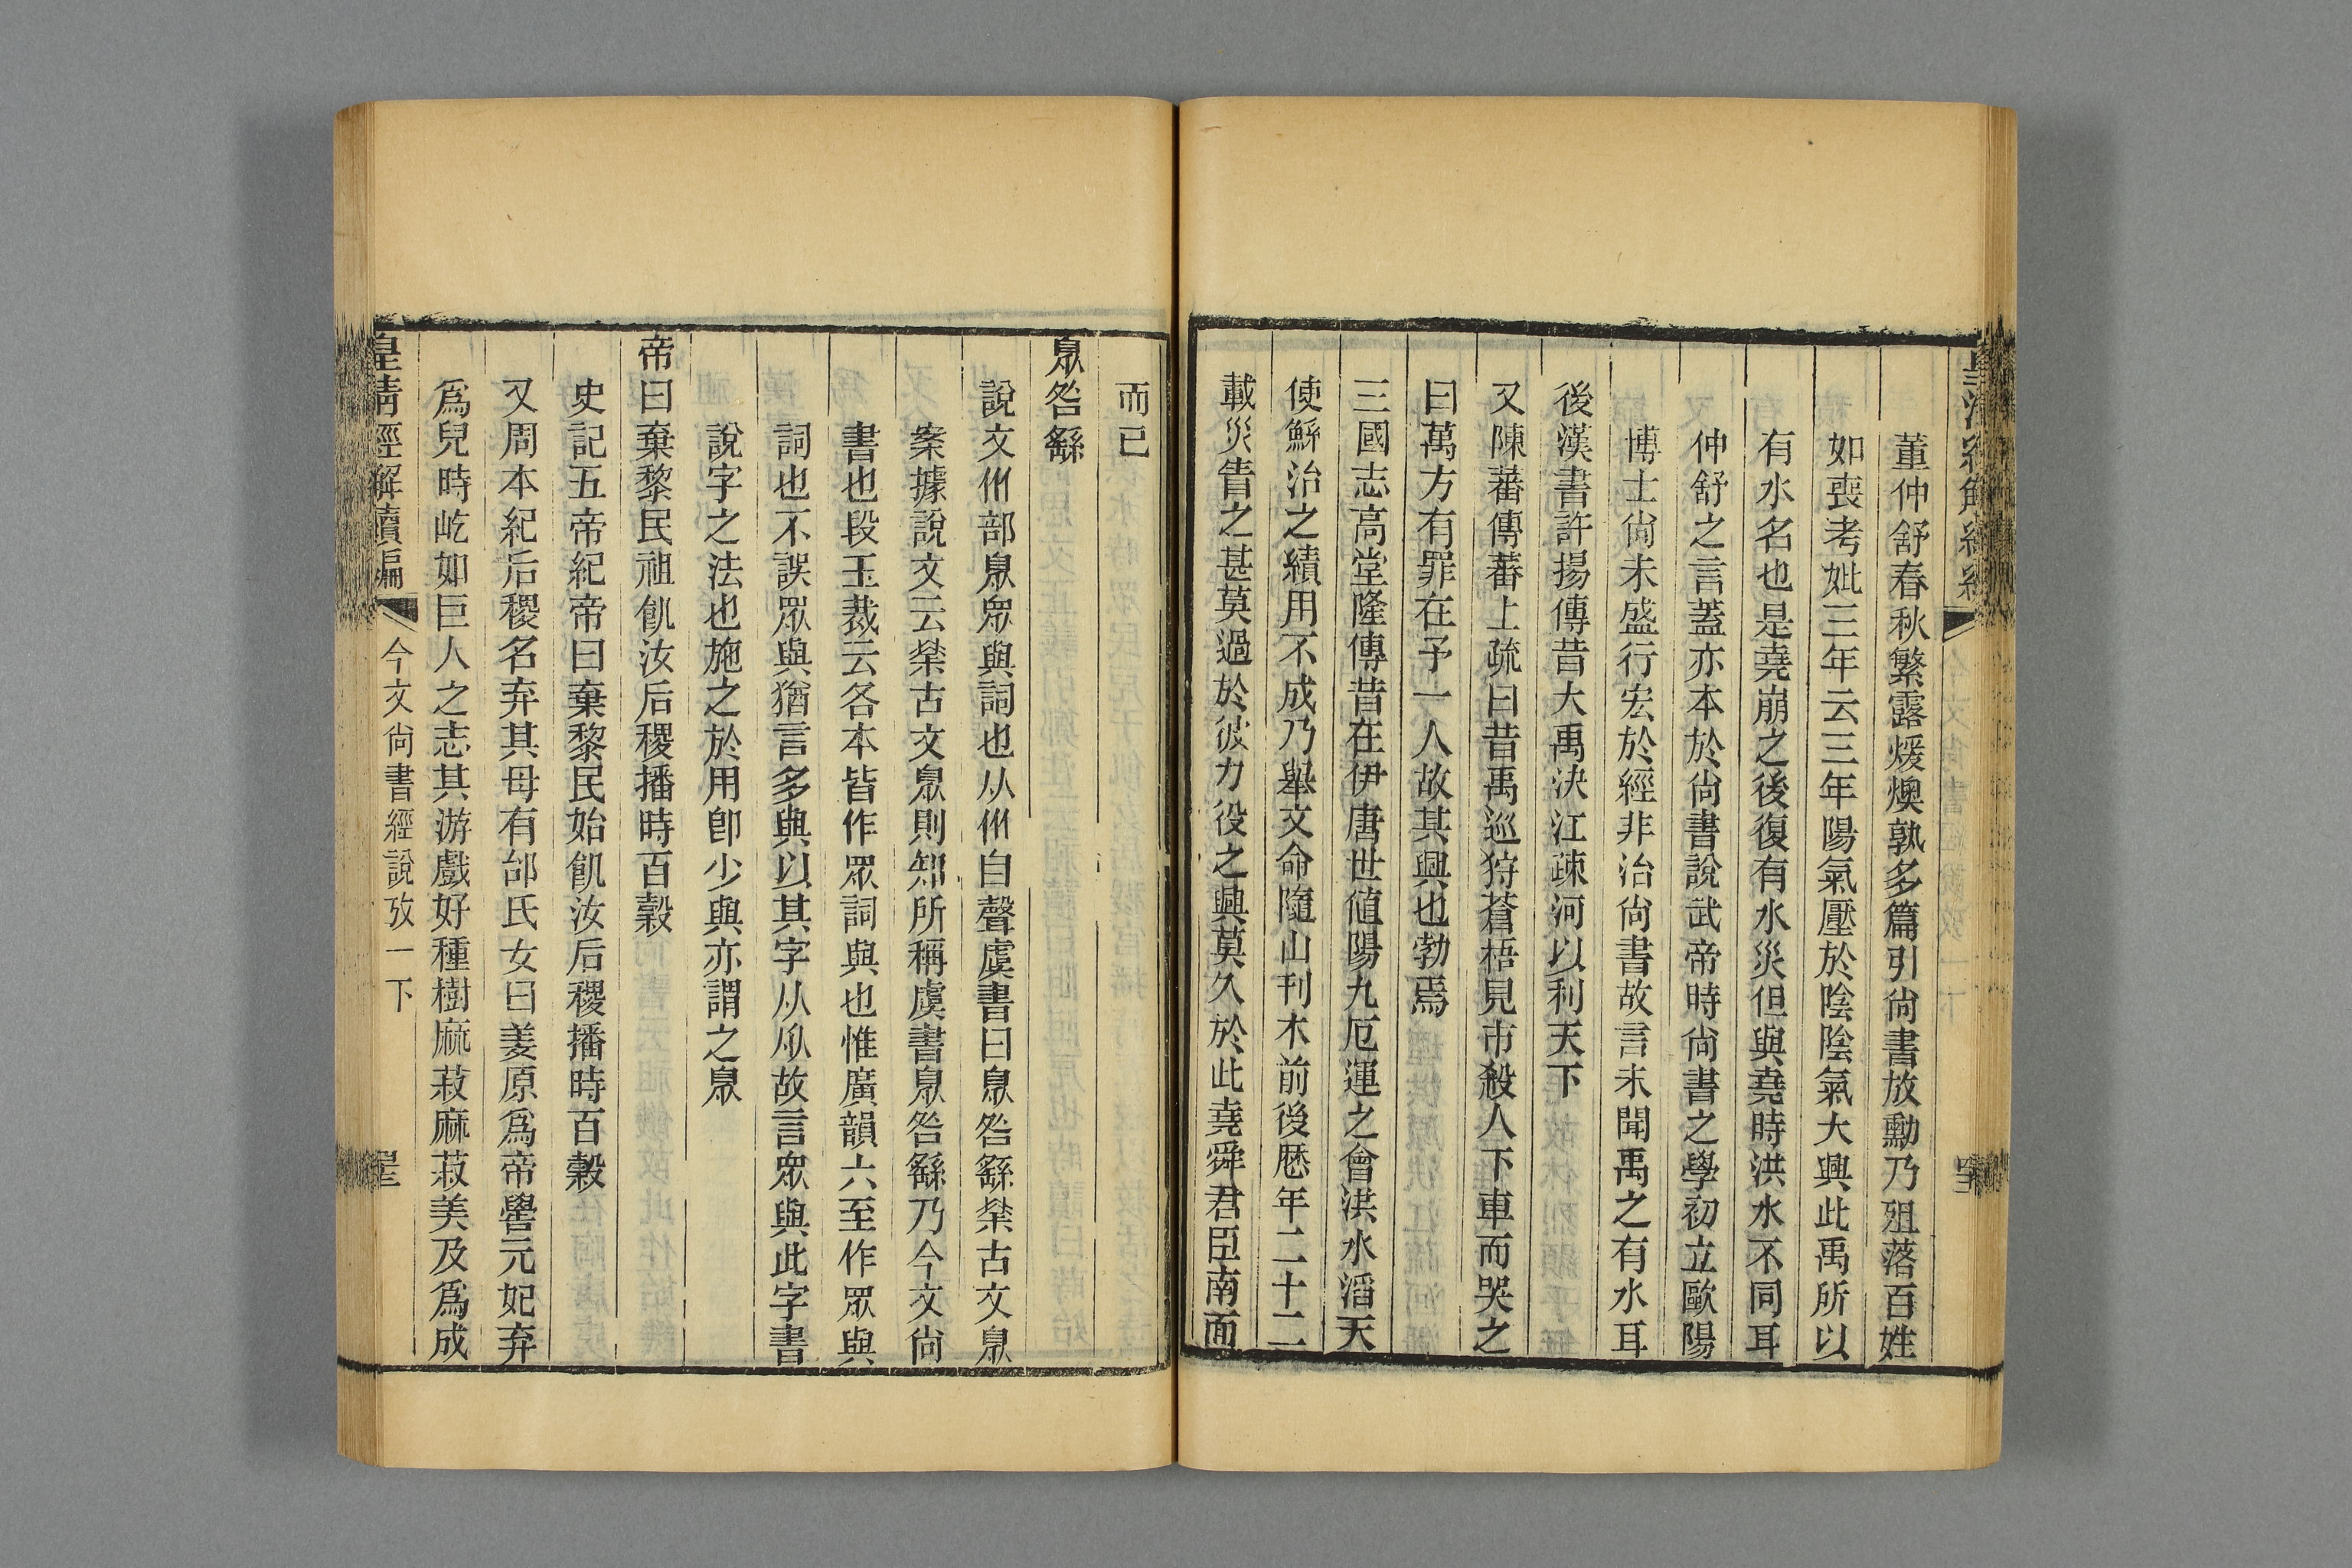 董仲舒春秋繁露煖燠孰多篇引尙書放勳乃殂落百姓
如喪考妣三年云三年陽氣壓於陰陰氣大興此禹所以
有水名也是堯崩之後復有水災但與堯時洪水不同耳
仲舒之言蓋亦本於尙書說武帝時尙書之學初立歐陽
博士尙未盛行宏於經非治尙書故言未聞禹之有水耳
後漢書許揚傳昔大禹決江疎河以利天下
又陳蕃傳蕃上疏曰昔禹巡狩蒼梧見市殺人下車而哭之
曰萬方有罪在予一人故其興也勃焉
三國志高堂隆傳昔在伊唐世値陽九厄運之會洪水滔天
使鯀治之績用不成乃舉文命隨山刊木前後歷年二十二
載災眚之甚莫過於彼力役之興莫久於此堯舜君臣南面
而已
臮咎繇
說文㐺部臮眾與詞也从㐺自聲虞書曰臮咎繇㮚古文臮
案據說文云㮚古文臮則知所稱虞書臮咎繇乃今文尙
書也段玉裁云各本皆作眾詞與也惟廣韻六至作眾與
詞也不誤眾與猶言多與以其字从㐺故言眾與此字書
說字之法也施之於用卽少與亦謂之臮
帝曰棄黎民祖飢汝后稷播時百穀
史記五帝紀帝曰棄黎民始飢汝后稷播時百穀
又周本紀后稷名弃其母有邰氏女曰姜原爲帝嚳元妃弃
爲兒時屹如巨人之志其游戲好種樹麻菽麻菽美及爲成
皇淸經解續編
今文尙書經說攷一下